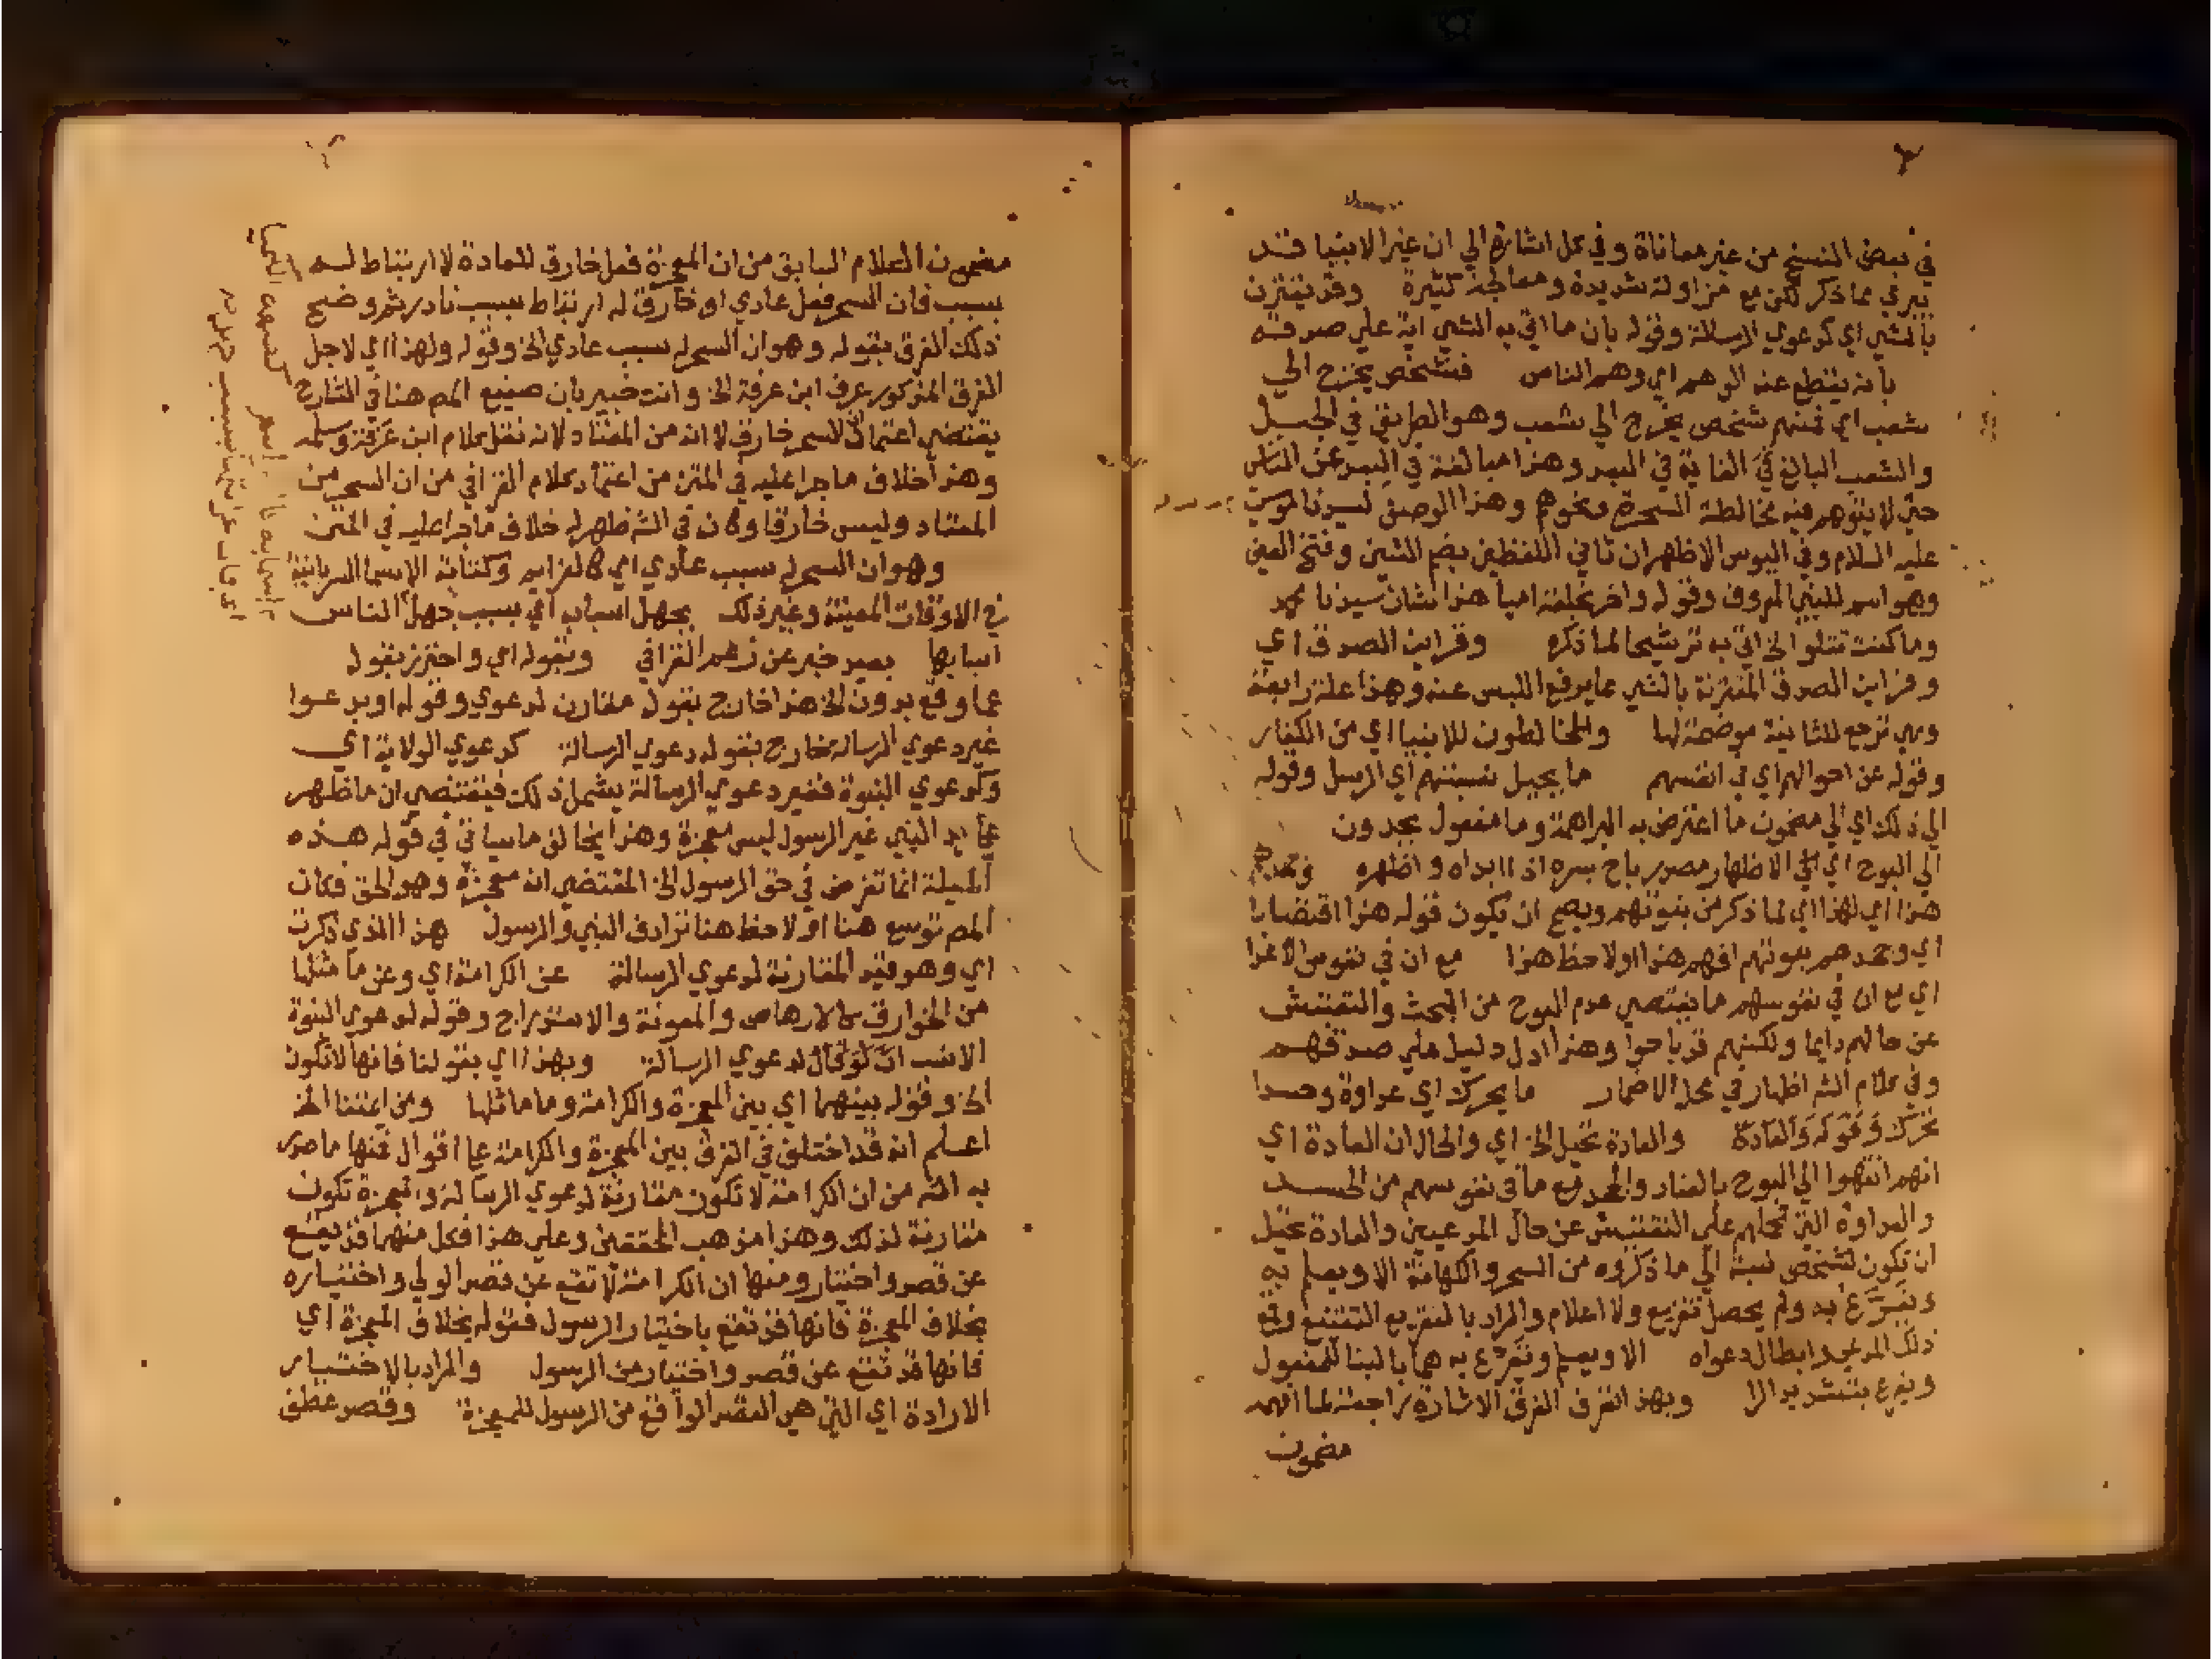 في بعض النسخ من غير معاناة وفي كل اشارة الي ان غير الانبيا قد
يبرئ مما ذكر لكن مع مزاولة شديدة ومعالجة كثيرة وقد يقترن
بالشي اي كدعوي الرسالة وقوله بان ما اتي به الشي اية علي صدقه
بانه ينقطع عنه الوهم اي وهم الناس فشخص يخرج الي
شعب اي فمنهم شخص يخرج الي شعب وهو الطريق في الجبل
والشعب البالغ في الغاية في البعد وهذا مبالغة في البعد عن الناس
حتي لا يتوهم فيه مخالطة السحرة ونحوهم وهذا الوصف لسيدنا موسي
عليه السلام وفي البوس الاظهر ان ثاني اللفظين بضم الشين وفتح العين
وهو اسم للنبي المعروف وقوله واخر هذا الشان سيدنا محمد
وما كنت تتلو الخ اتي به ترشيحا لما ذكره وقراين الصدق اي
وقراين الصدق المقترنة بالشي مما يرفع اللبس عنه وهذا علة رابعة
وهي ترجع للثانية موضحة لها والمخالطون للانبيا اي من الكفار
وقوله عن احوالهم اي في انفسهم ما يحيل نسبتهم اي الرسل وقوله
الي ذلك اي الي مضمون ما اعترض به البراهمة وما مفعول يجدون
الي البوح اي الي الاظهار مصدر باح بسره اذا ابداه واظهره
هذا اي لهذا اي لما ذكر من بنوتهم ويصح ان يكون قوله هذا اقتضابا
اي افهم هذا اولاحظ هذا مع ان في نفوس الاعدا
اي مع ان في نفوسهم ما يقتضي عدم البوح من البحث والتفتيش
عن حالهم دايما ولكنهم قد باحوا وهذا ادل دليل علي صدقهم
وفي كلام الشه اظهار في محل الاضمار ما يحرك اي عداوة وحسدا
تحرك وقوله والعادة والعادة تحيل الخ اي والحال ان العادة اي
انهم انتهوا الي البوح بالعناد والجحد مع ما في نفوسهم من الحسد
والعداوة التي تحملهم علي التفتيش عن حال المدعيين والعادة تحيل
ان تكون لشخص نسبة الي ما ذكروه من السحر والكهانة الا ويعلم به
ويقرع به ولم يحصل تقريع ولا اعلام والمراد بالتقريع التشنيع وقع
ذلك المدعي ابطال دعواه الا ويعلم ويقرع به هما بالبنا للمفعول
ويقرع بتشديد الرا وبهذا الفرق الفرق الاشارة راجعة لما افهمه
مضمون
مضمون الكلام السابق من ان المعجزة فعل خارق للعادة لا ارتباط له
بسبب فان السحر فعل عادي او خارق له ارتباط بسبب نادر ثم وضح
ذلك الفرق بقوله وهو ان السحر له سبب عادي الخ وقوله ولهذا اي لاجل
الفرق المذكور عرف ابن عرفة الخ وانت خبير بان صنيع المص هنا في الشارح
يقتضي اعتماد ان السحر خارق لا انه من المعتاد لانه نقل كلام ابن عرفة وسلمه
وهذا خلاف ما جرا عليه في المتن من اعتماد كلام القرافي من ان السحر من
المعتاد وليس خارقا وكان في الشه ظهر له خلاف ما جرا عليه في المتن
وهو ان السحر له سبب عادي اي كالعزايم وكتابة الاسما السريانية
في الاوقات المعينة وغير ذلك بجهل اسبابه اي بسبب جهل الناس
اسبابها بعيد خبر عن زعم القرافي وبقوله اي واحترز بقوله
عما وقع بدون الخ هذا خارج بقوله مقارن لدعوي وقوله او بدعوا
غير دعوي الرسالة خارج بقوله دعوي الرسالة كدعوي الولاية اي
وكدعوي النبوة فغير دعوي الرسالة يشمل ذلك فيقتضي ان ما ظهر
علي يد النبي غير الرسول ليس معجزة وهذا يخالف ما سياتي في قوله هذه
المسيلة انما تفرض في حق الرسول الخ المقتضي انه معجزة وهو الحق فكان
المص توسع هنا او لاحظ هنا ترادف النبي والرسول هذا الذي ذكرت
اي وهو قيد المقارنة لدعوي الرسالة عن الكرامة اي وعن ما مثلها
من الخوارق كالارهاص والمعونة والاستدراج وقوله لدعوي النبوة
الانسب ان لو قال لدعوي الرسالة وبهذا اي بقولنا فانها لا تكون
الخ وقوله بينهما اي بين المعجزة والكرامة وما ماثلها ومن ايمتنا الخ
اعلم انه قد اختلف في الفرق بين المعجزة والكرامة علي اقوال فمنها ما صدر
به الشه من ان الكرامة لا تكون مقارنة لدعوي الرسالة والمعجزة تكون
مقارنة لذلك وهذا مذهب المحققين وعلي هذا فكل منهما قد يقع
عن قصد واختيار ومنها ان الكرامة لا تقع عن قصد الولي واختياره
بخلاف المعجزة فانها قد تقع باختيار الرسول فقوله بخلاف المعجزة اي
فانها قد تقع عن قصد واختيار من الرسول والمراد بالاختيار
الارادة اي التي هي القصد الواقع من الرسول للمعجزة وقصد عطف